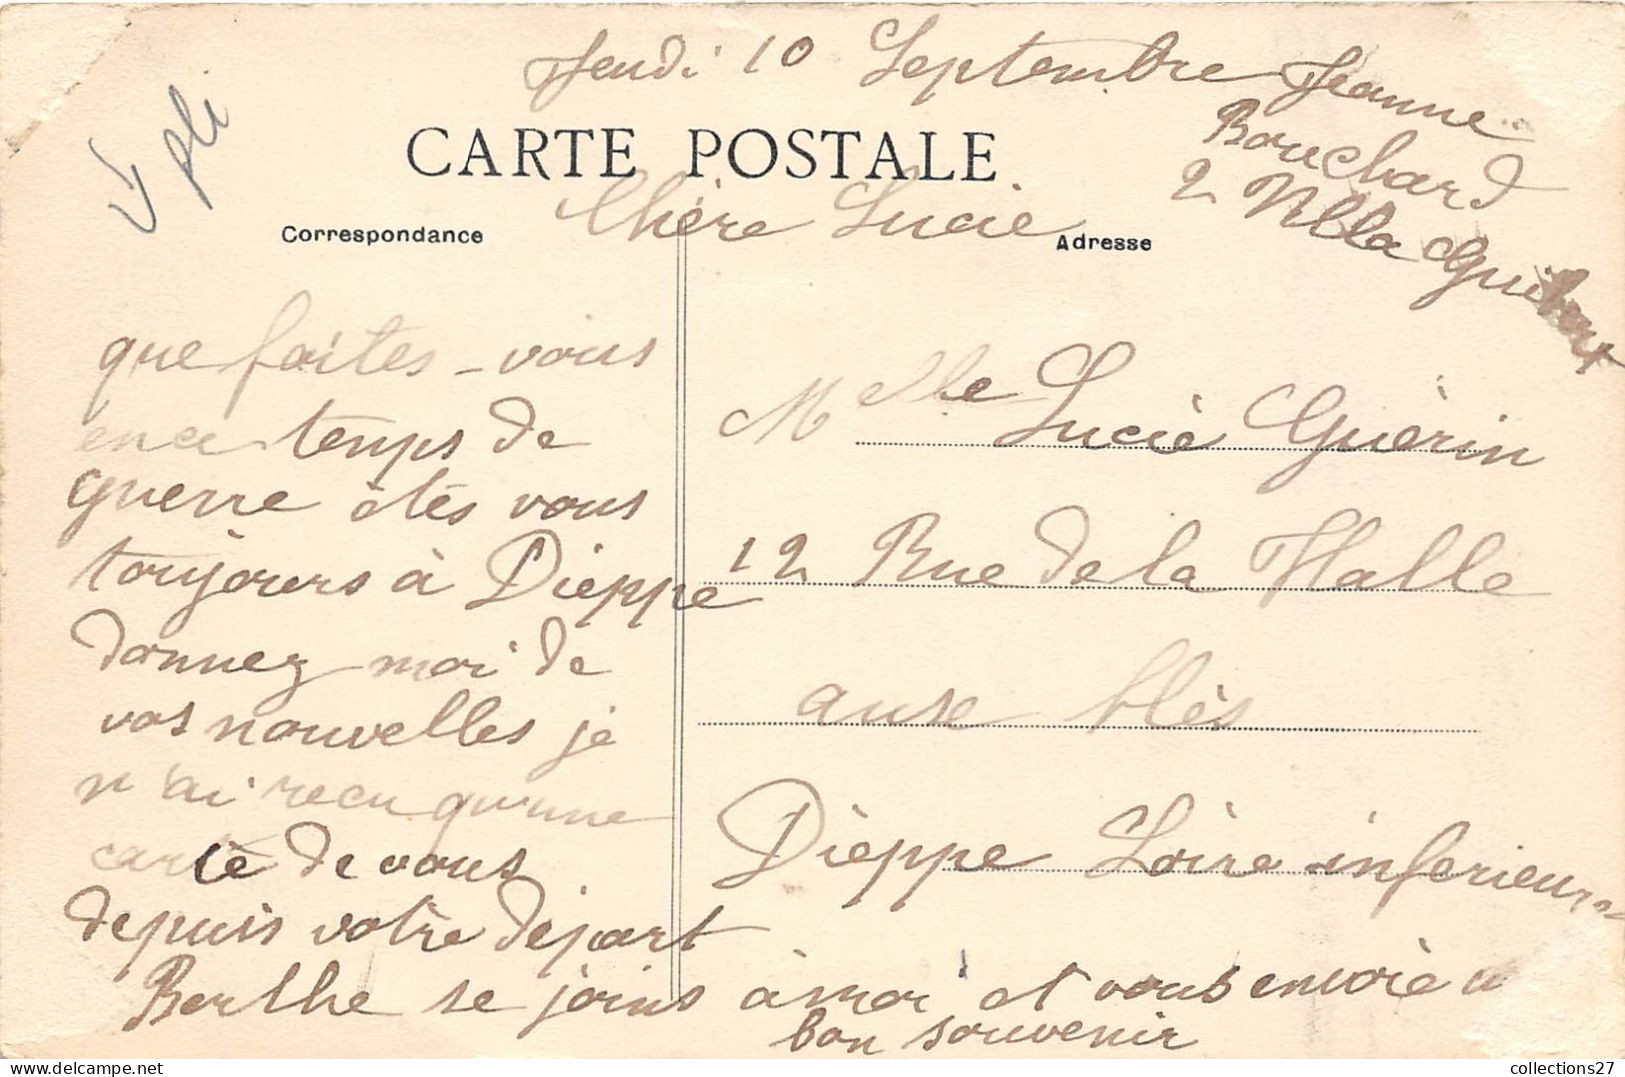 Jeudi 10 Septembre Jeanne
Bouchard
2 Villa Guibert
pli
CARTE POSTALE
Chère Lucie
Correspondance
Adresse
que faites-vous
en ce temps de
guerre êtes vous
toujours à Dieppe
donnez moi de
vos nouvelles je
n'ai recu qu'une
carte de vous
depuis votre départ
Berthe se joins à moi et vous envoie un
bon souvenir
Melle Lucie Guèrin
12 Rue de la Halle
ause blès
Dièppe Loire inferieure
collections27